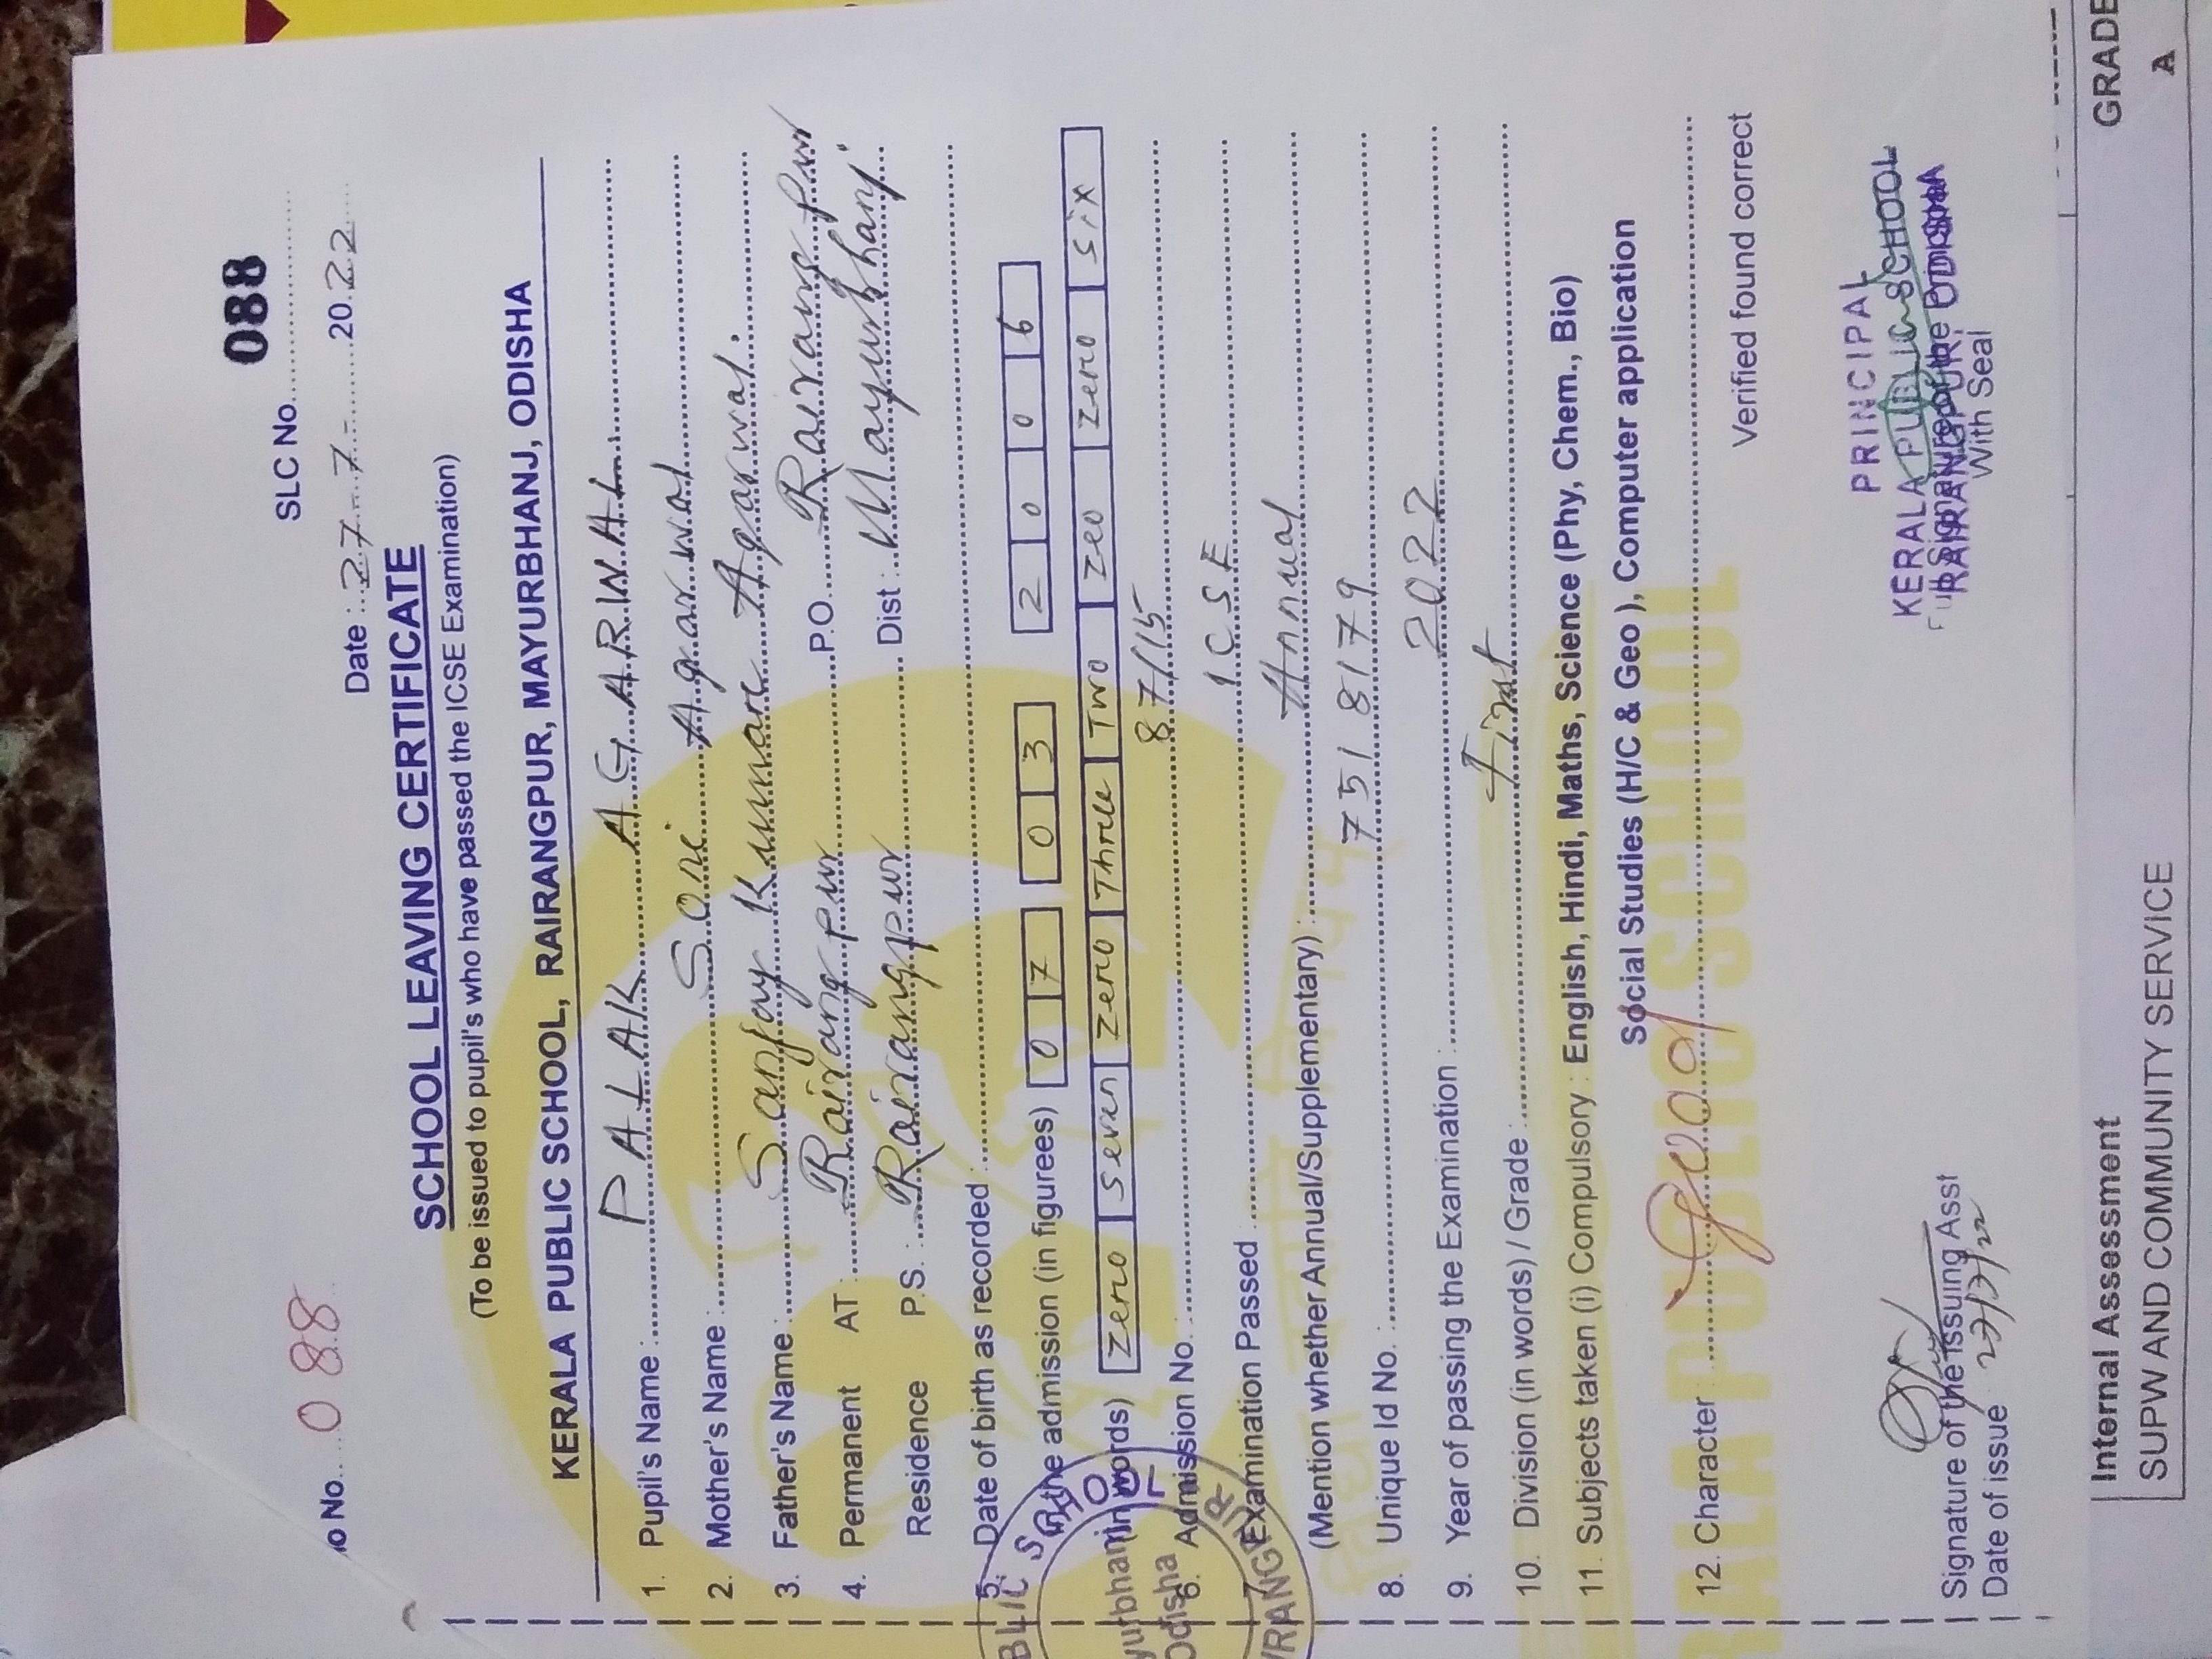 No. 088
SLC No. 088
Date : 27-7-2022
SCHOOL LEAVING CERTIFICATE
(To be issued to pupil's who have passed the ICSE Examination)
KERALA PUBLIC SCHOOL, RAIRANGPUR, MAYURBHANJ, ODISHA
1. Pupil's Name : PALAK AGARWAL
2. Mother's Name : Soni Agarwal
3. Father's Name : Sanjay Kumar Agarwal.
4. Permanent AT : Rairangpur P.O. Rairangpur
Residence P.S. : Rairangpur Dist : Mayurbhanj
5. Date of birth as recorded
the admission (in figurees) 0 7 0 3 2 0 0 6
(in words) Zero Seven Zero Three Two Zeo Zero Six
6. Admission No. 87/15
7. Examination Passed ICSE
(Mention whether Annual/Supplementary) : Annual
8. Unique Id No. : 7518179
9. Year of passing the Examination : 2022
10. Division (in words) / Grade : First
11. Subjects taken (i) Compulsory : English, Hindi, Maths, Science (Phy, Chem., Bio)
Social Studies (H/C & Geo ), Computer application
12. Character Good
Verified found correct
PRINCIPAL
KERALA PUBLIC SCHOOL
RAIRANGPUR, ODISHA
Full Signature of the Principal
With Seal
Signature of the Issuing Asst
Date of issue 27/7/22
BLIC SCHOOL
yurbhanj
Odisha
IRANGPUR
KERALA PUBLIC SCHOOL
Internal Assessment GRADE
SUPW AND COMMUNITY SERVICE A